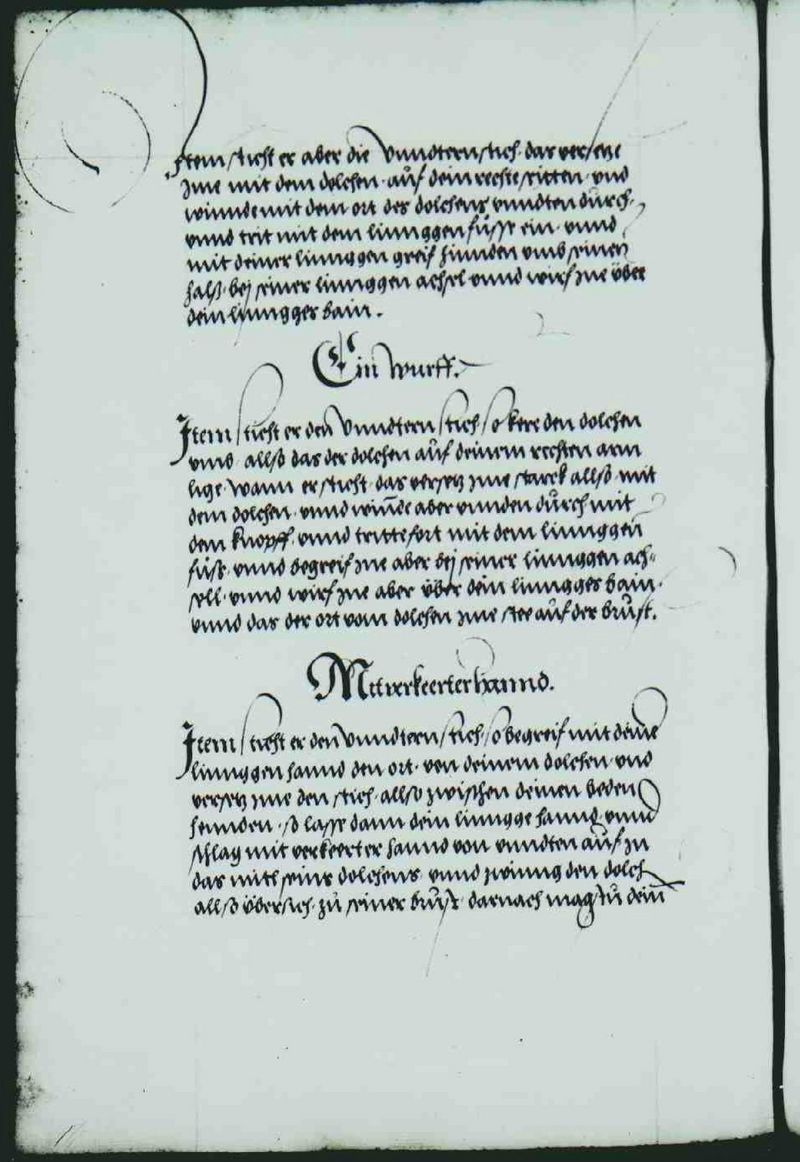 Item sticht er aber die Vnndternstich· das versetze
Jme mit dem dolchen· auf dein rechte seitten· vnd
winnde mit dem ort des dolchens vnndten durch·
vnnd trit mit dem linnggen füsse ein· vnnd
mit deiner linnggen greif hinnden vmb seinen
halß· bej seiner linnggen achsel vnnd wirf Jne über
dein linngges bain.
Ein wurff.
Item sticht er den Vnndtern stich· so kere den dolchen
vmb· allso das der dolchen auf deinem rechten arm
lige· wann er sticht· das versetz Jme starck allso mit
dem dolchen· vnnd winnde aber vnnden durch mit
dem knopff· vnnd tritte fort mit dem linnggen
füß· vnnd begreif Jne aber bej seiner linnggen ach=
sell· vnnd wirf Jne aber über dein linngges bain·
vnnd das der ort vom dolchen Jme stee auf der brust.
Mit verkeerter hannd.
Item sticht er den Vnndtern stich· so begreif mit deine
linnggen hannd den ort· von deinem dolchen· vnd
versetz Jme den stich· allso zwischen deinen beden
hennden· so lasse dann dein linngge hannd· vnnd
schlag mit verkeerter hannd von vnndten auf· Jn
das mitl seins dolchens· vnnd zwinng den dolch
allso übersich· zü seiner brust· darnach magstu dein